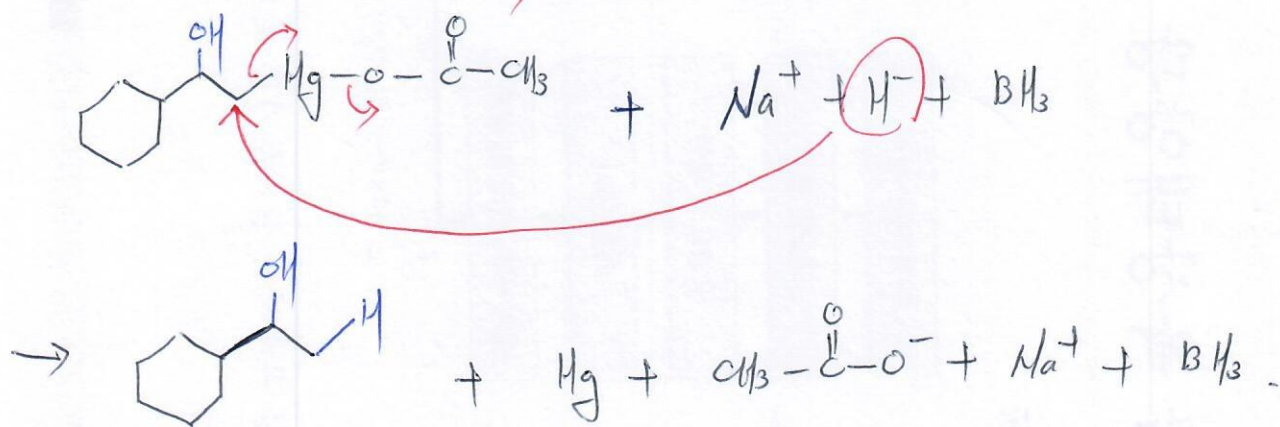 OH
Hg-O-C-CH3
O
+ Na+ + H- + BH3
OH
H
→ + Hg + CH3-C-O- + Na+ + BH3.
O